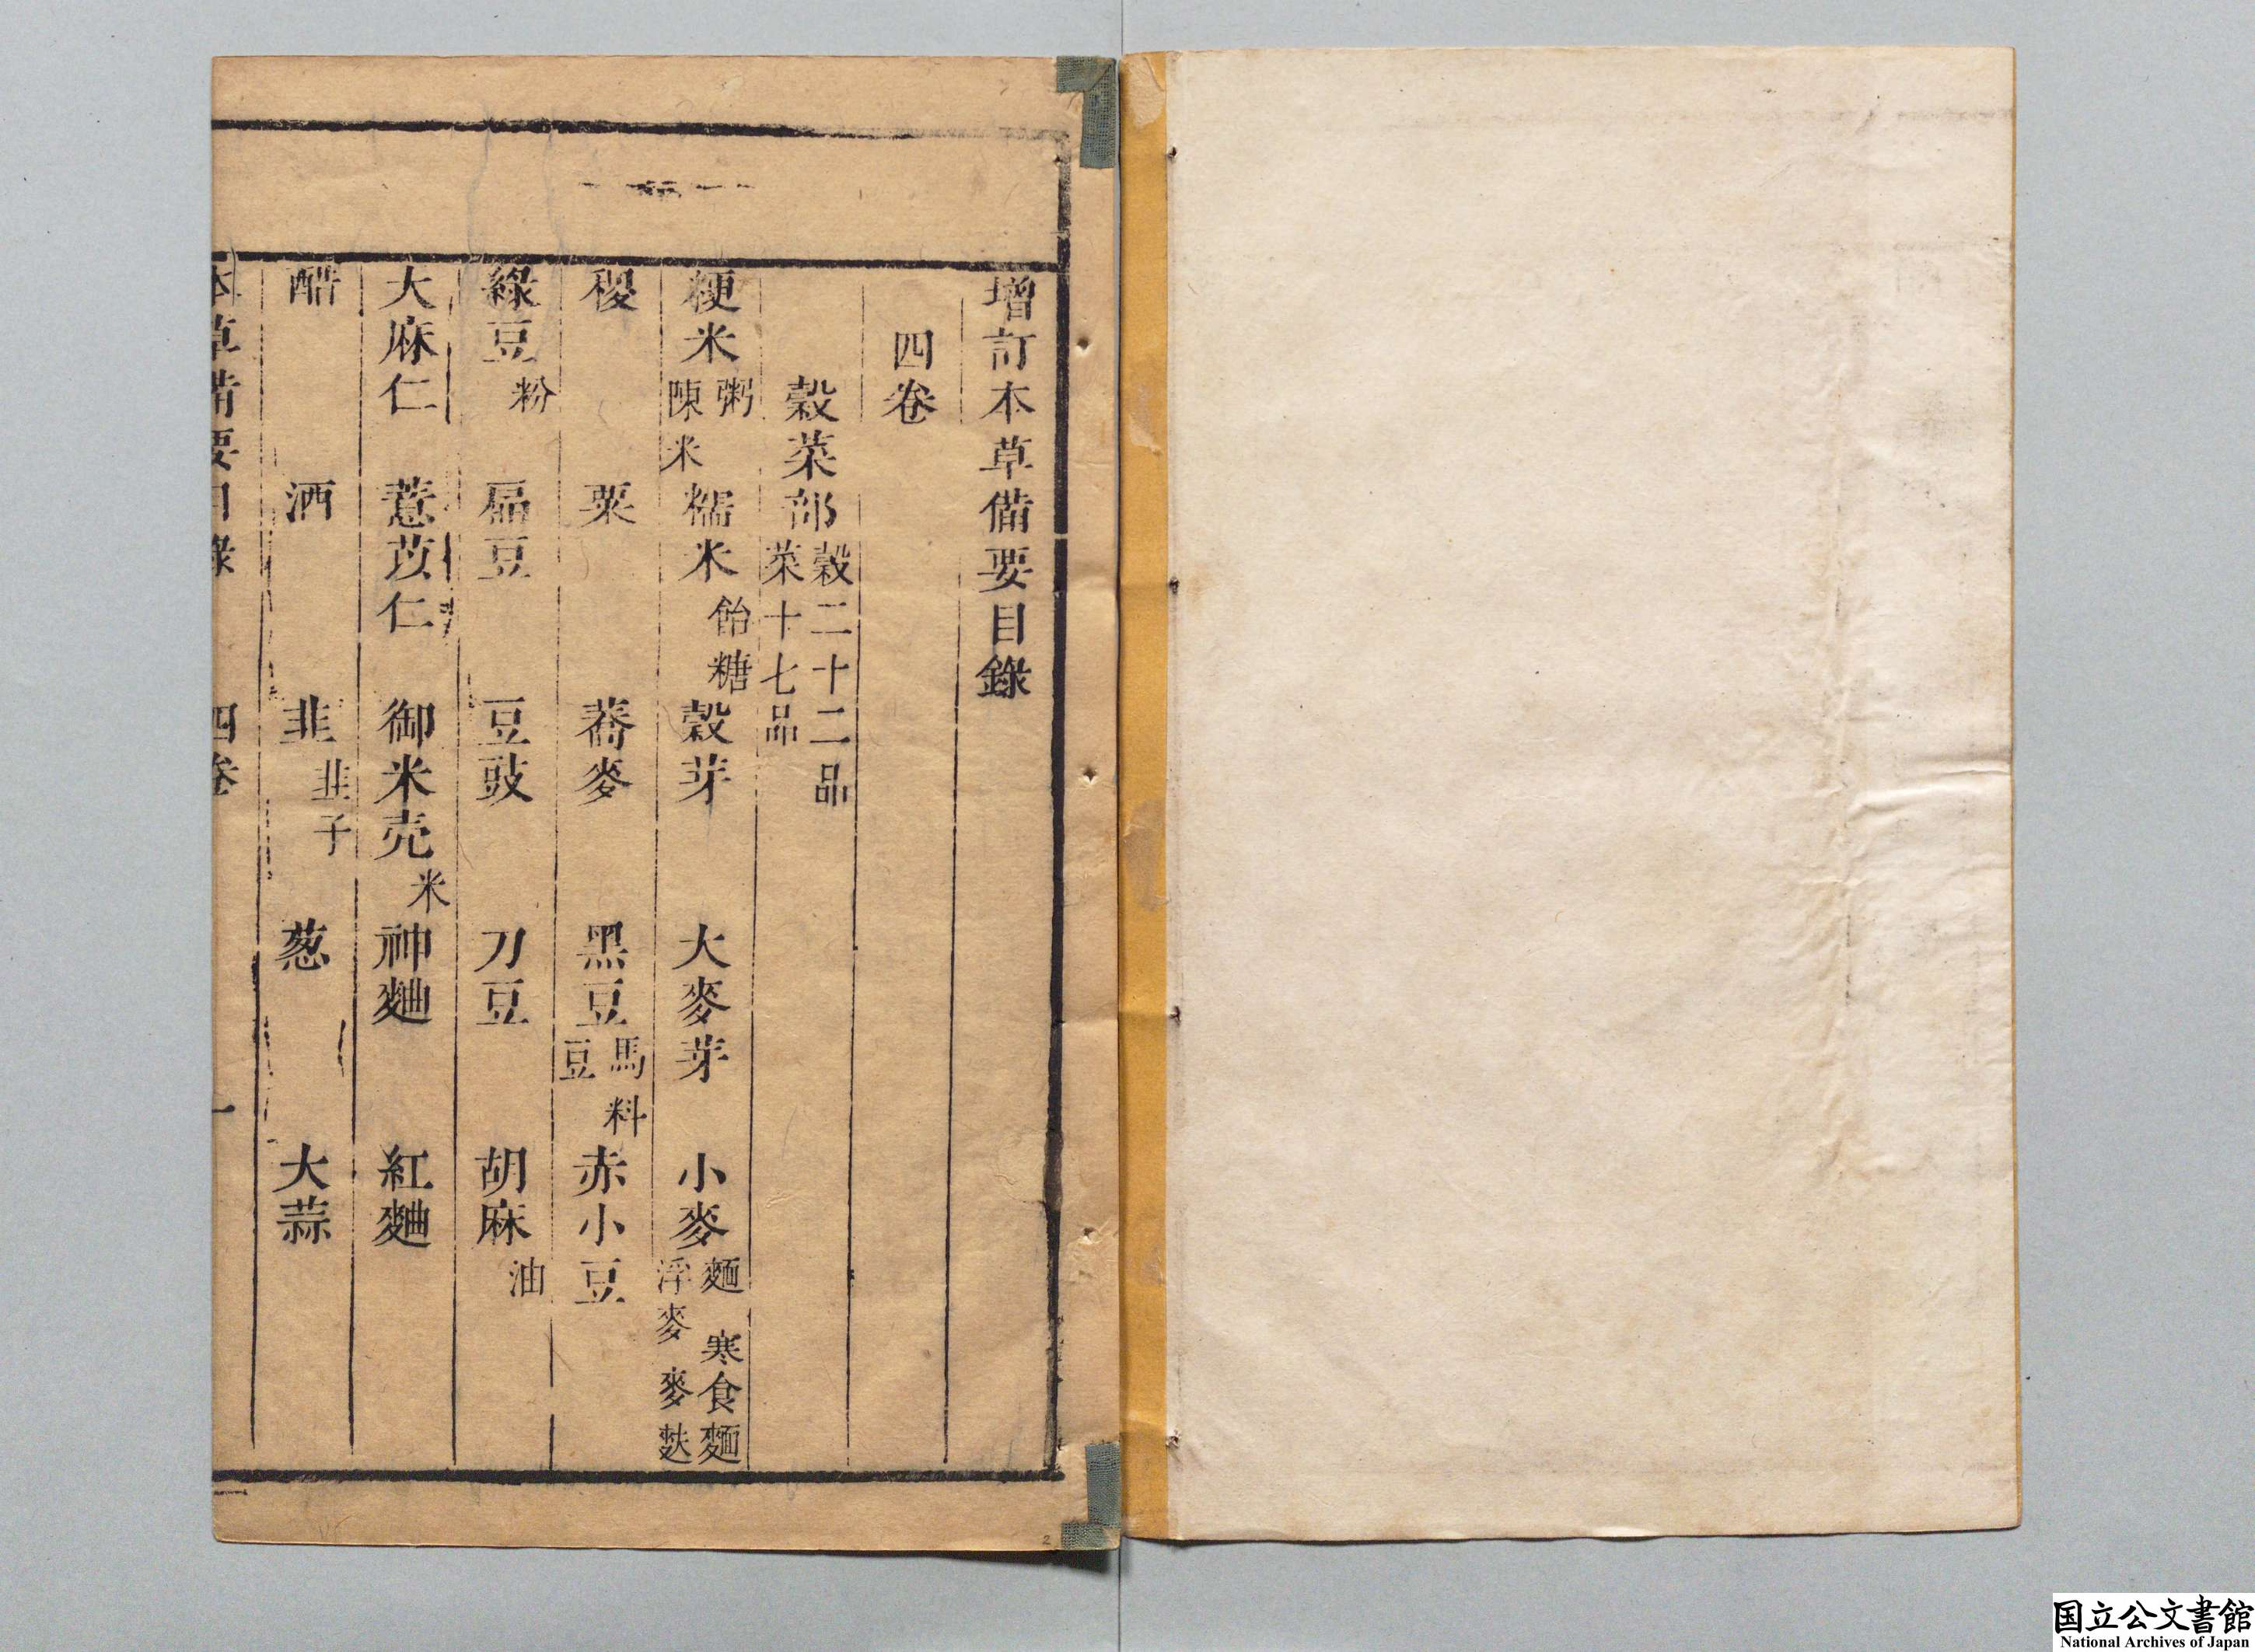 增訂本草備要目錄
四卷
穀菜部 穀二十二品 菜十七品
粳米 粥 陳米 糯米 飴糖 穀芽 大麥芽 小麥 麵 寒食麵 浮麥 麥麩
稷 粟 蕎麥 黑豆 馬料豆 赤小豆
綠豆 粉 扁豆 豆豉 刀豆 胡麻 油
大麻仁 薏苡仁 御米壳 米 神麯 紅麯
醋 酒 韭 韭子 葱 大蒜
本草備要目錄 四卷 一
2
国立公文書館
National Archives of Japan